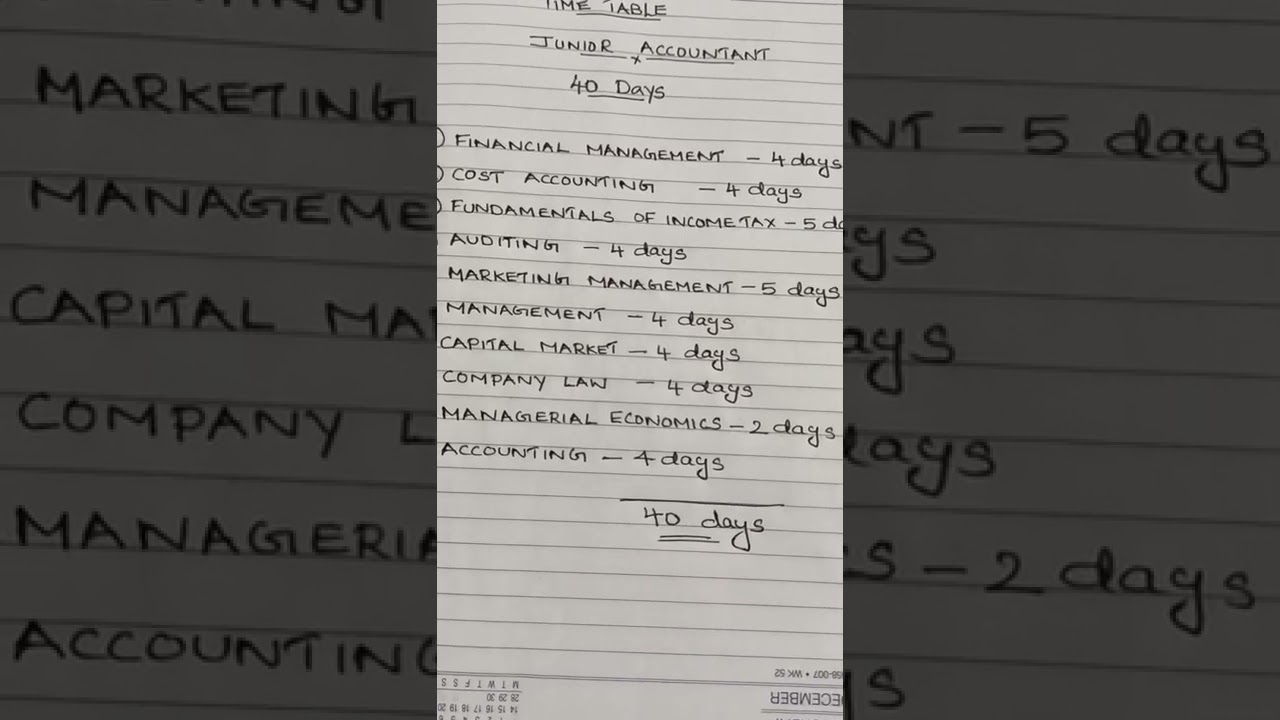 TIME TABLE
JUNIOR ACCOUNTANT
40 Days
) FINANCIAL MANAGEMENT - 4 days
) COST ACCOUNTING - 4 days
) FUNDAMENTALS OF INCOME TAX - 5 da
AUDITING - 4 days
MARKETING MANAGEMENT - 5 days
MANAGEMENT - 4 days
CAPITAL MARKET - 4 days
COMPANY LAW - 4 days
MANAGERIAL ECONOMICS - 2 days
ACCOUNTING - 4 days
40 days
58-007 • WK 52
ECEMBER
M T W T F S S
28 29 30
14 15 16 17 18 19 20
MARKETING
NT - 5 days
MANAGEME
ays
CAPITAL MA
ays
COMPANY L
days
MANAGERIA
S - 2 days
ACCOUNTING
s